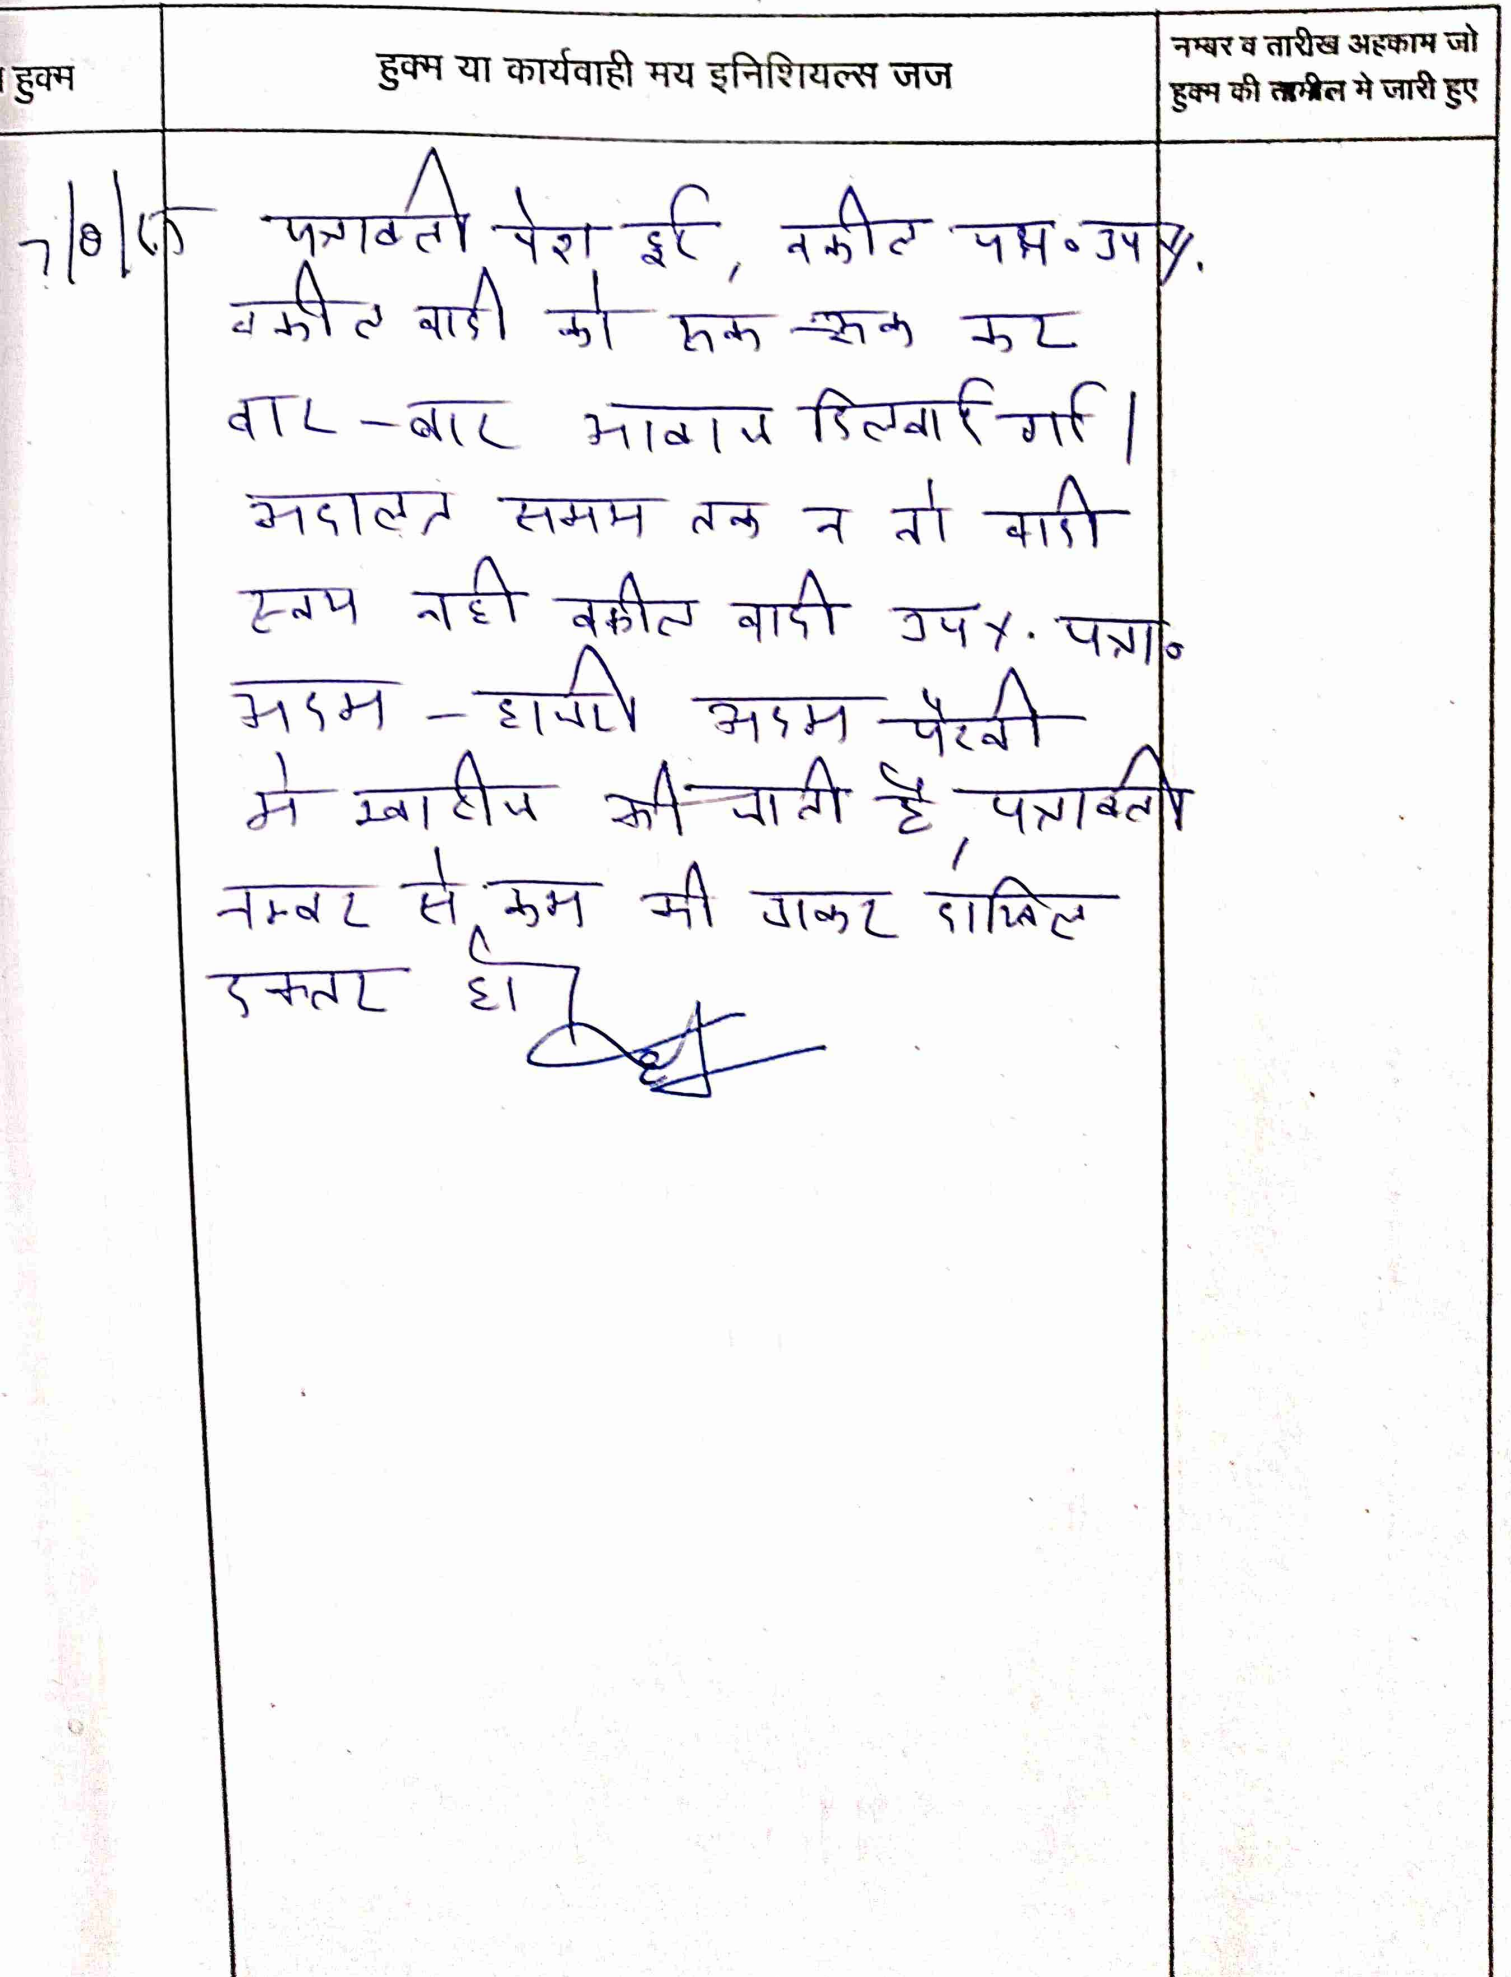 हुक्म
हुक्म या कार्यवाही मय इनिशियल्स जज
नम्बर व तारीख अहकाम जो
हुक्म की तामील मे जारी हुए
पत्रावली पेश हुई, वकील उप०
वकील वादी को रूक-रूक कर
बार-बार आवाज दिलवाई गई।
अदालत समय तक न तो वादी
स्वय नही वकील वादी उप०. पत्रा०
अदम - हाजरी अदम पैरवी
मे खारीज की जाती है, पत्रावली
नम्बर से कम की जाकर दाखिल
दफ्तर हो।